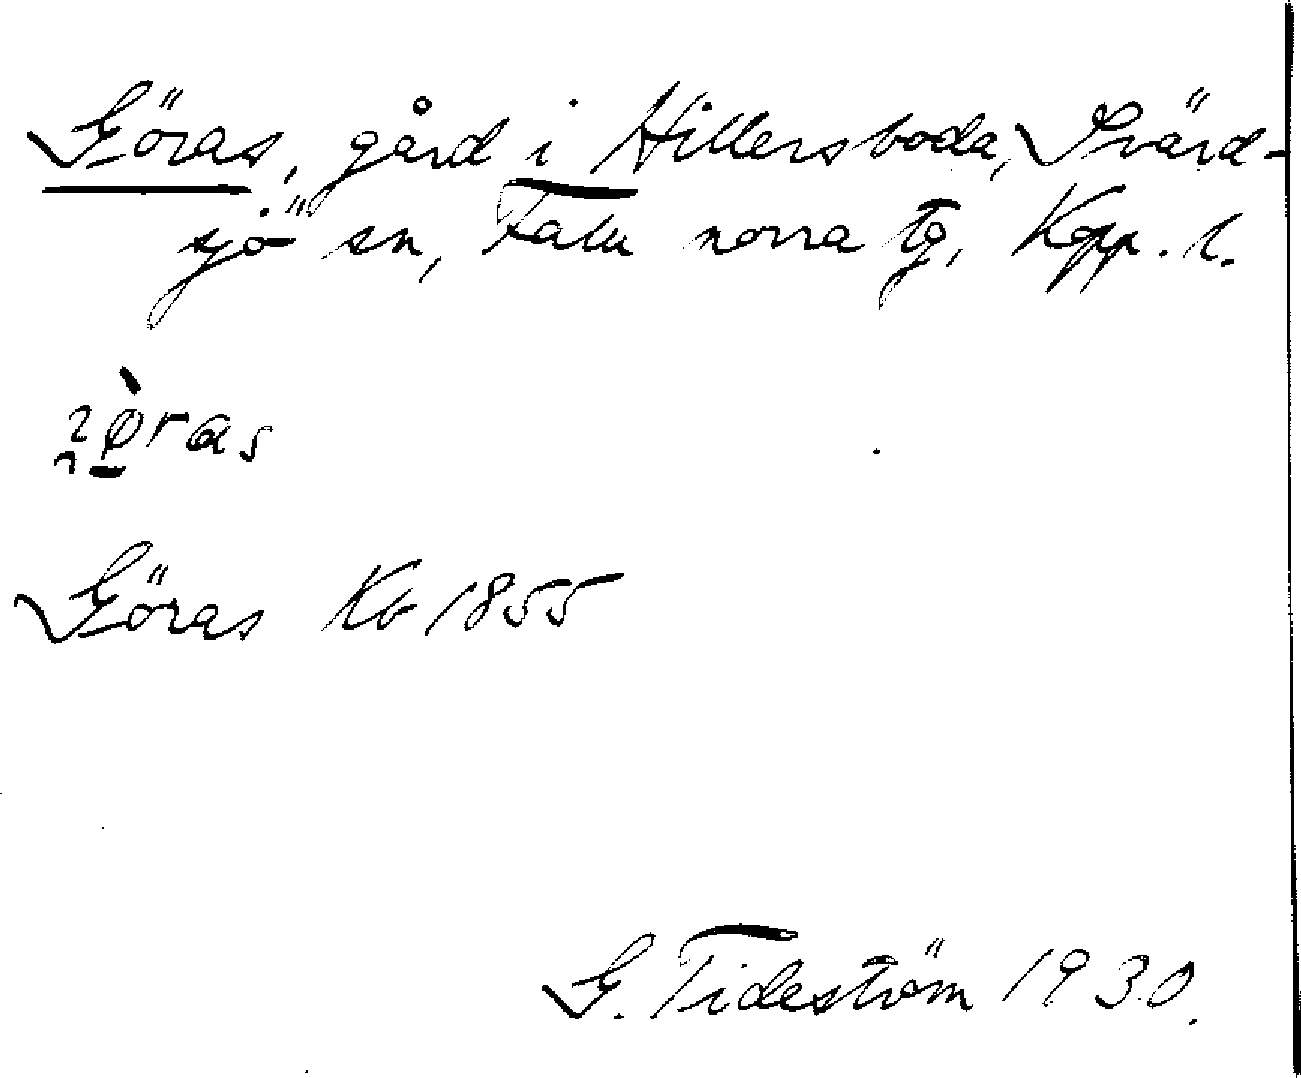 Göras, gård i Hillersboda, Svärd-
sjö sn, Falu norra tg, Kopp. l.
Göras Kb 1855
G. Tideström 1930.